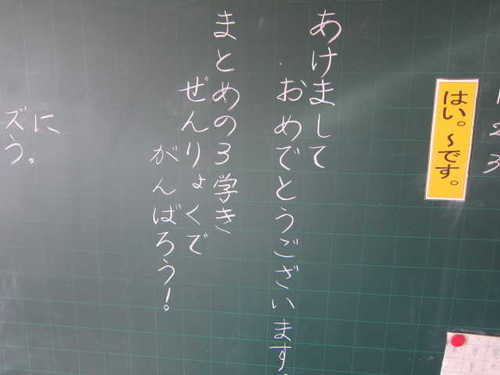 1
2
3
はい。〜です。
あけまして
おめでとうございます。
まとめの3学き
ぜんりょくで
がんばろう！
に
ズう。